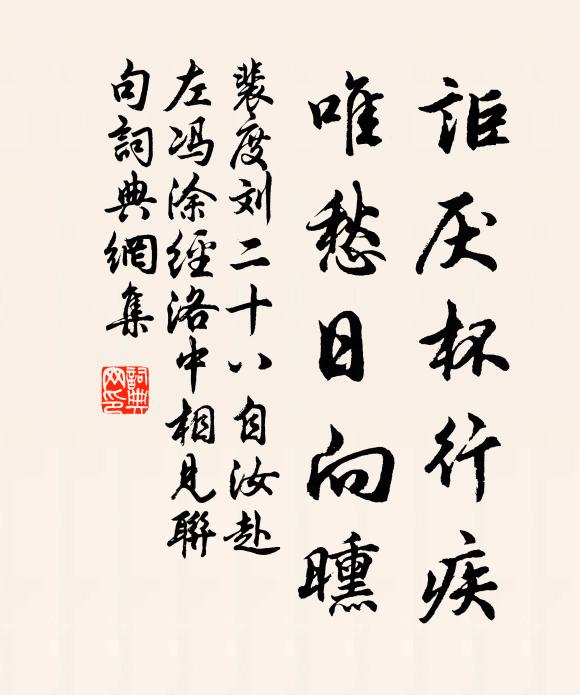 詎厌杯行疾
唯愁日向曛
裴度刘二十八自汝赴
左冯涂經洛中相見聯
句詞典網集
詞典网印